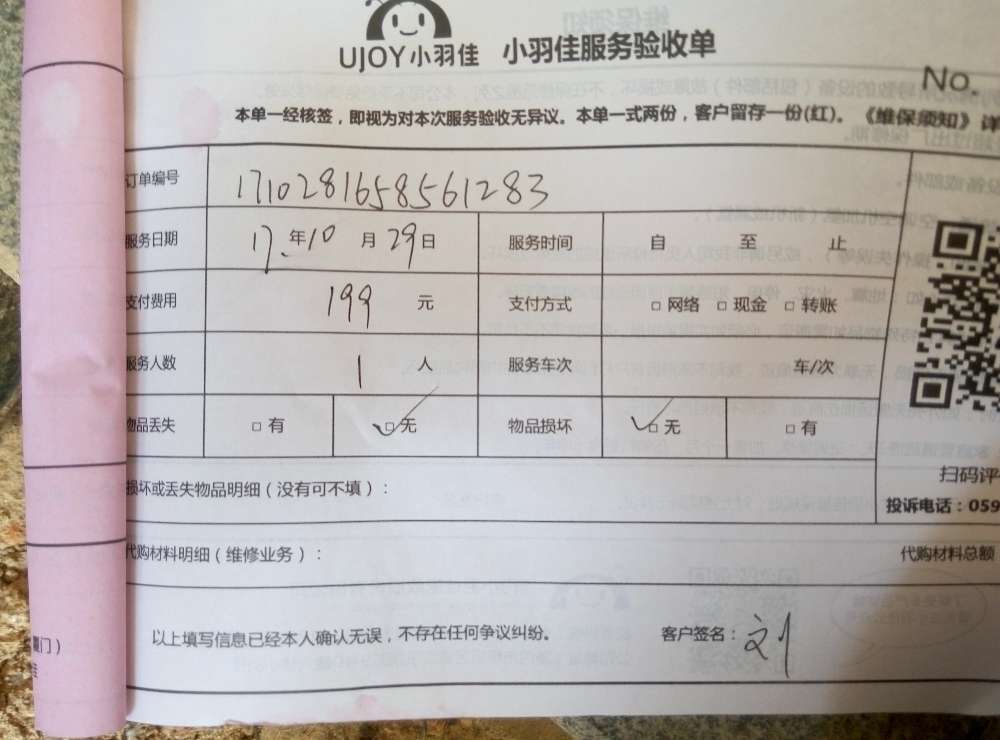 UJOY小羽佳 小羽佳服务验收单
No.
本单一经核签，即视为对本次服务验收无异议。本单一式两份，客户留存一份(红)。《维保须知》详
订单编号 1710281658561283
服务日期 17年10月29日 服务时间 自 至 止
支付费用 199 元 支付方式 □ 网络 □ 现金 □ 转账
服务人数 1 人 服务车次 车/次
物品丢失 □ 有 □ 无 物品损坏 □ 无 □ 有
扫码评
损坏或丢失物品明细（没有可不填）：
投诉电话：059
代购材料明细（维修业务）： 代购材料总额
以上填写信息已经本人确认无误，不存在任何争议纠纷。 客户签名：刘
厦门）